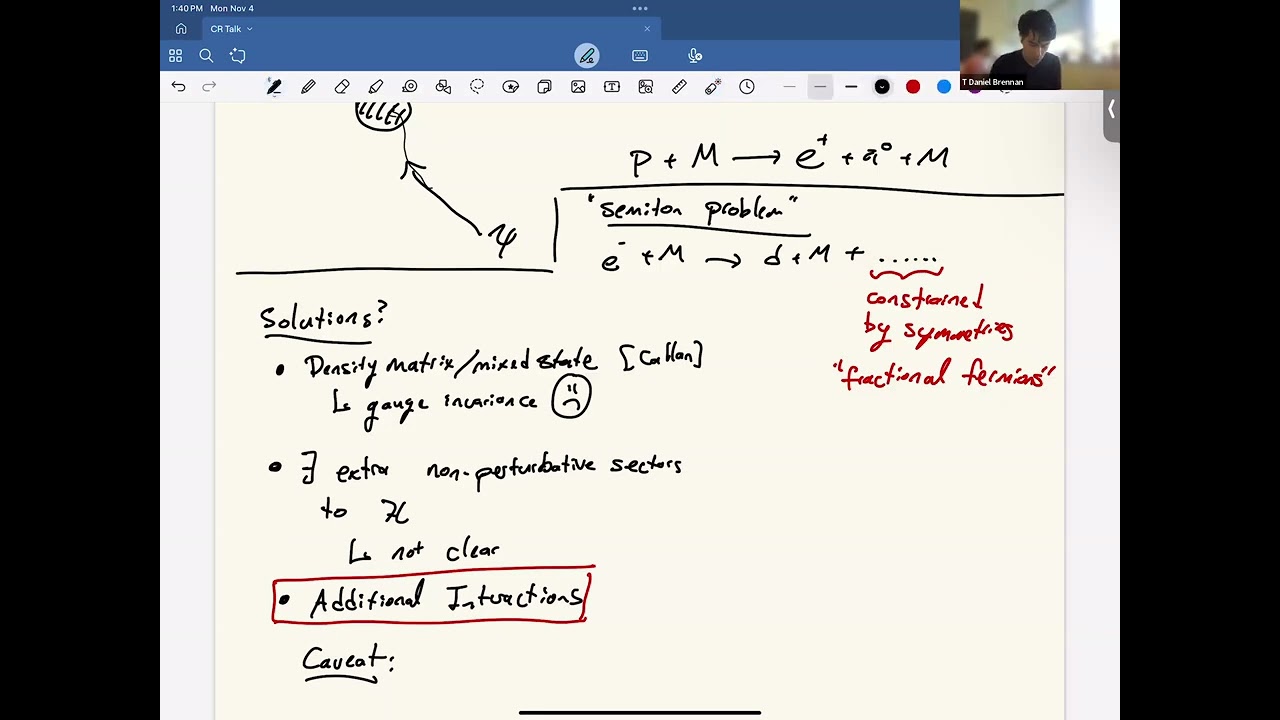 1:40 PM Mon Nov 4
CR Talk
T Daniel Brennan
p + M → e⁺ + π⁰ + M
"semiton problem"
e⁻ + M → d + M + ......
ψ
constrained
by symmetries
"fractional fermions"
Solutions?
• Density matrix/mixed state [Callan]
↳ gauge invariance ☹
• ∃ extra non-perturbative sectors
to ℋ
↳ not clear
• Additional Interactions
Caveat: